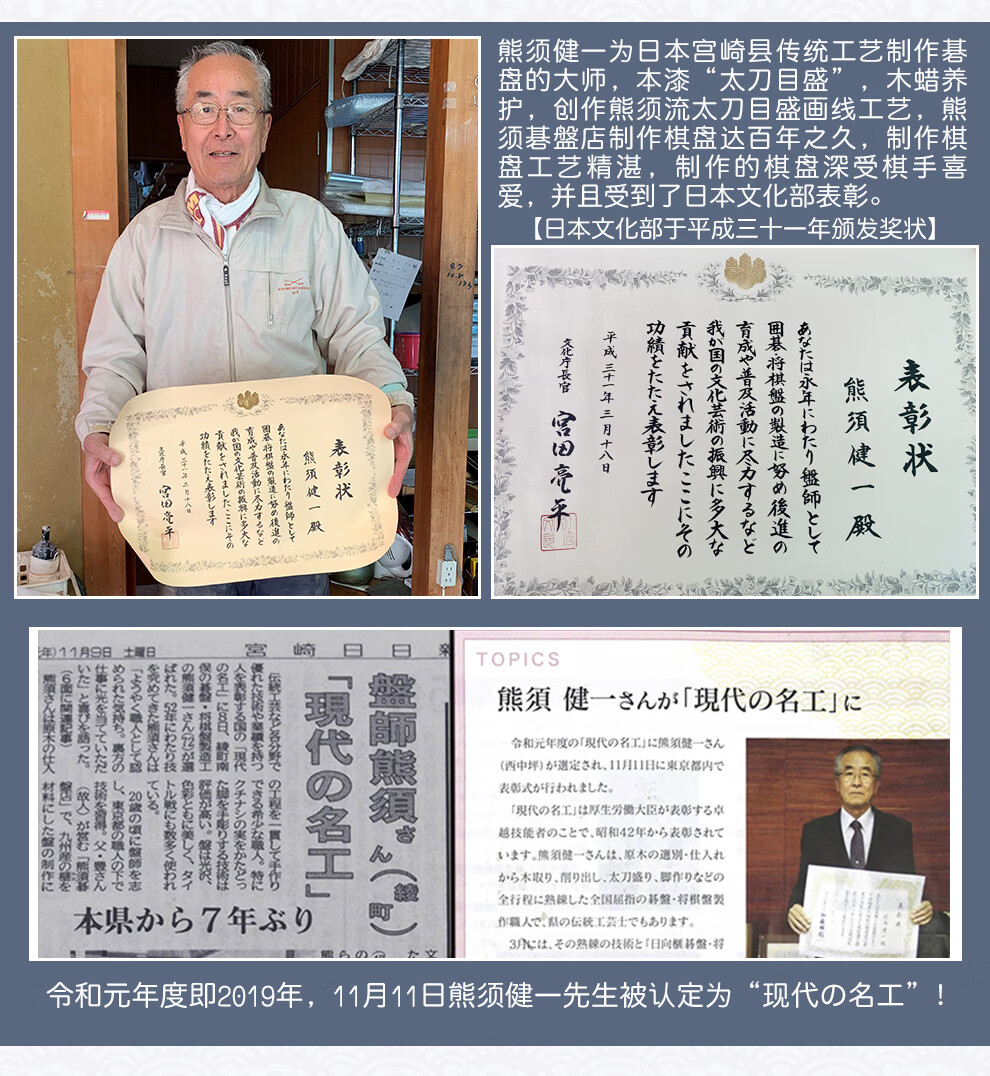 熊须健一为日本宫崎县传统工艺制作碁
盘的大师，本漆“太刀目盛”，木蜡养
护，创作熊须流太刀目盛画线工艺，熊
须碁磐店制作棋盘达百年之久，制作棋
盘工艺精湛，制作的棋盘深受棋手喜
爱，并且受到了日本文化部表彰。
【日本文化部于平成三十一年颁发奖状】
表彰状
熊須健一殿
あなたは永年にわたり盤師として
囲碁・将棋盤の製造に努め後進の
育成や普及活動に尽力するなど
我が国の文化芸術の振興に多大な
貢献をされましたここにその
功績をたたえ表彰します
平成三十一年三月十八日
文化庁長官 宮田亮平
表彰状
熊須健一殿
あなたは永年にわたり盤師として
囲碁・将棋盤の製造に努め後進の
育成や普及活動に尽力するなど
我が国の文化芸術の振興に多大な
貢献をされましたここにその
功績をたたえ表彰します
平成三十一年三月十八日
文化庁長官 宮田亮平
年)11月9日 土曜日 宮崎日日
盤師熊須さん(綾町)
「現代の名工」
本県から7年ぶり
伝統工芸など各分野で
優れた技術や業績を持つ
人を表彰する国の「現代
の名工」に8日、綾町南
俣の碁盤・将棋盤製造工
の熊須健一さん(72)が選
ばれた。52年にわたり技
を究めてきた熊須さんは
「ようやく職人として認
められた気持ち。裏方の
仕事に光を当てていただ
いた」と喜びを語った。
(6面に関連記事)
熊須さんは原木の仕入
の工程を一貫して手作り
できる希少な職人。特に
クチナシの実をかたどっ
た脚を手彫りする技術は
評価が高い。盤は光沢、
色彩ともに美しく、タイ
トル戦にも数多く使われ
ている。
20歳の頃に盤師を志
し、東京都の職人の下で
技術を習得。父・豊さん
(故人)が営む「熊須碁
盤店」で、九州産の榧を
材料にした盤の制作に
TOPICS
熊須 健一さんが「現代の名工」に
令和元年度の「現代の名工」に熊須健一さん
(西中坪)が選定され、11月11日に東京都内で
表彰式が行われました。
「現代の名工」は厚生労働大臣が表彰する卓
越技能者のことで、昭和42年から表彰されて
います。熊須健一さんは、原木の選別・仕入れ
から木取り、削り出し、太刀盛り、脚作りなどの
全行程に熟練した全国屈指の碁盤・将棋盤製
作職人で、県の伝統工芸士でもあります。
3月には、その熟練の技術と「日向榧碁盤・将
令和元年度即2019年，11月11日熊须健一先生被认定为“现代の名工”！